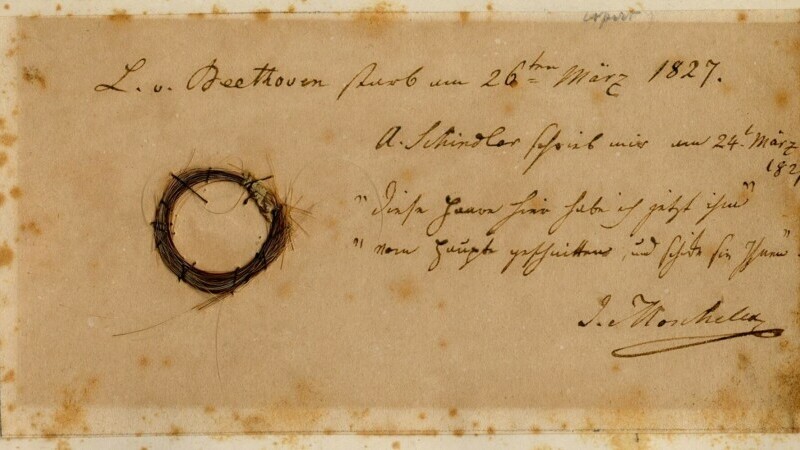 L. v. Beethoven starb am 26ten März 1827.
A. Schindler schrieb mir am 24t März
182
"diese Haare hier habe ich jetzt ihm"
"vom Haupte geschnitten, und schicke sie Ihnen"
I. Moscheles